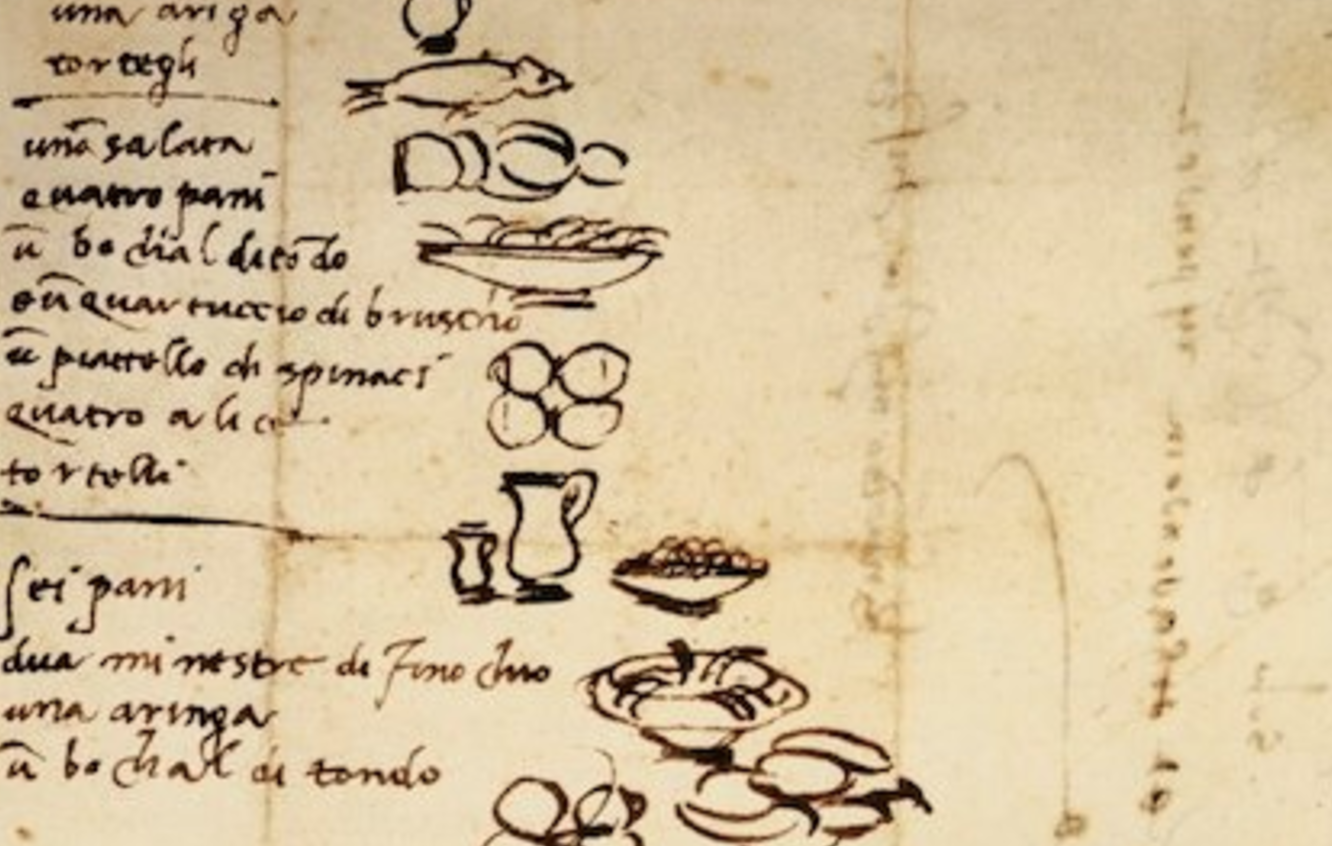 una ariga
tortegli
unā salata
quatro pani
ū bochal di tōdo
e ū quartuccio di bruscho
ū piattello di spinaci
quatro alice
tortelli
sei pani
dua minestre di finochio
una aringa
ū bochal di tondo